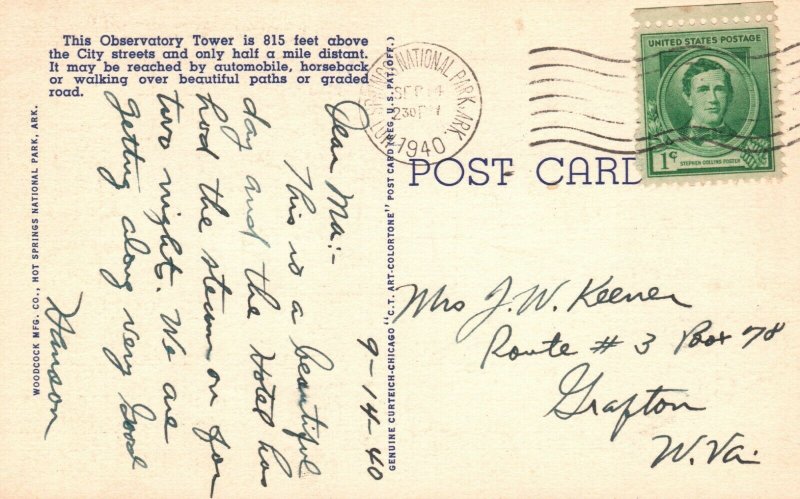 This Observatory Tower is 815 feet above
the City streets and only half a mile distant.
It may be reached by automobile, horseback
or walking over beautiful paths or graded
road.
WOODCOCK MFG. CO., HOT SPRINGS NATIONAL PARK, ARK.
9-14-40
Dear Ma:-
This is a beautiful
day and the Hotel has
had the steam on for
two night. We are
getting along very Good
Hanson
GENUINE CURTEICH-CHICAGO "C.T. ART-COLORTONE" POST CARD (REG. U.S. PAT. OFF.)
SPRINGS NATIONAL PARK, ARK.
SEP 14
230 PM
1940
UNITED STATES POSTAGE
1¢
STEPHEN COLLINS FOSTER
POST CARD
Mrs J. W. Keener
Route # 3 Box 78
Grafton
W. Va.